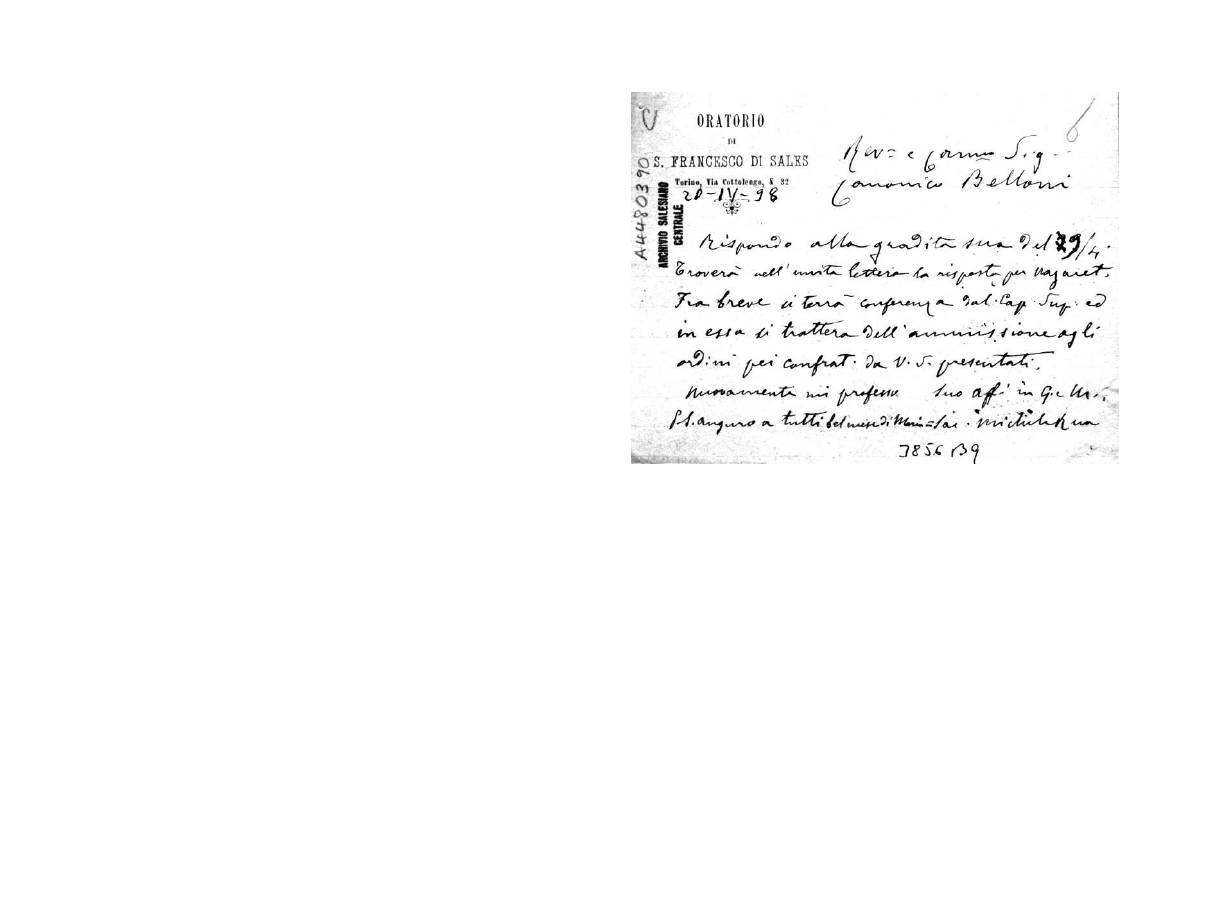 ORATORIO
DI
S. FRANCESCO DI SALES
Torino, Via Cottolengo, N 32
20-IV-98
A4480390
ARCHIVIO SALESIANO
CENTRALE
6
Rev= e Carmo Sig.
Canonico Belloni
Rispondo alla gradita sua del 29/4.
Troverà nell'unita lettera la risposta per Nazaret.
Fra breve si terrà conferenza dal Cap. Sup. ed
in essa si tratterà dell'ammissione agli
ordini pei confrat. da V. S. presentati.
Nuovamente mi professo Suo aff. in G. e M.
auguro a tutti bel mese di Maria = Sac. Michele Rua
3856 B9